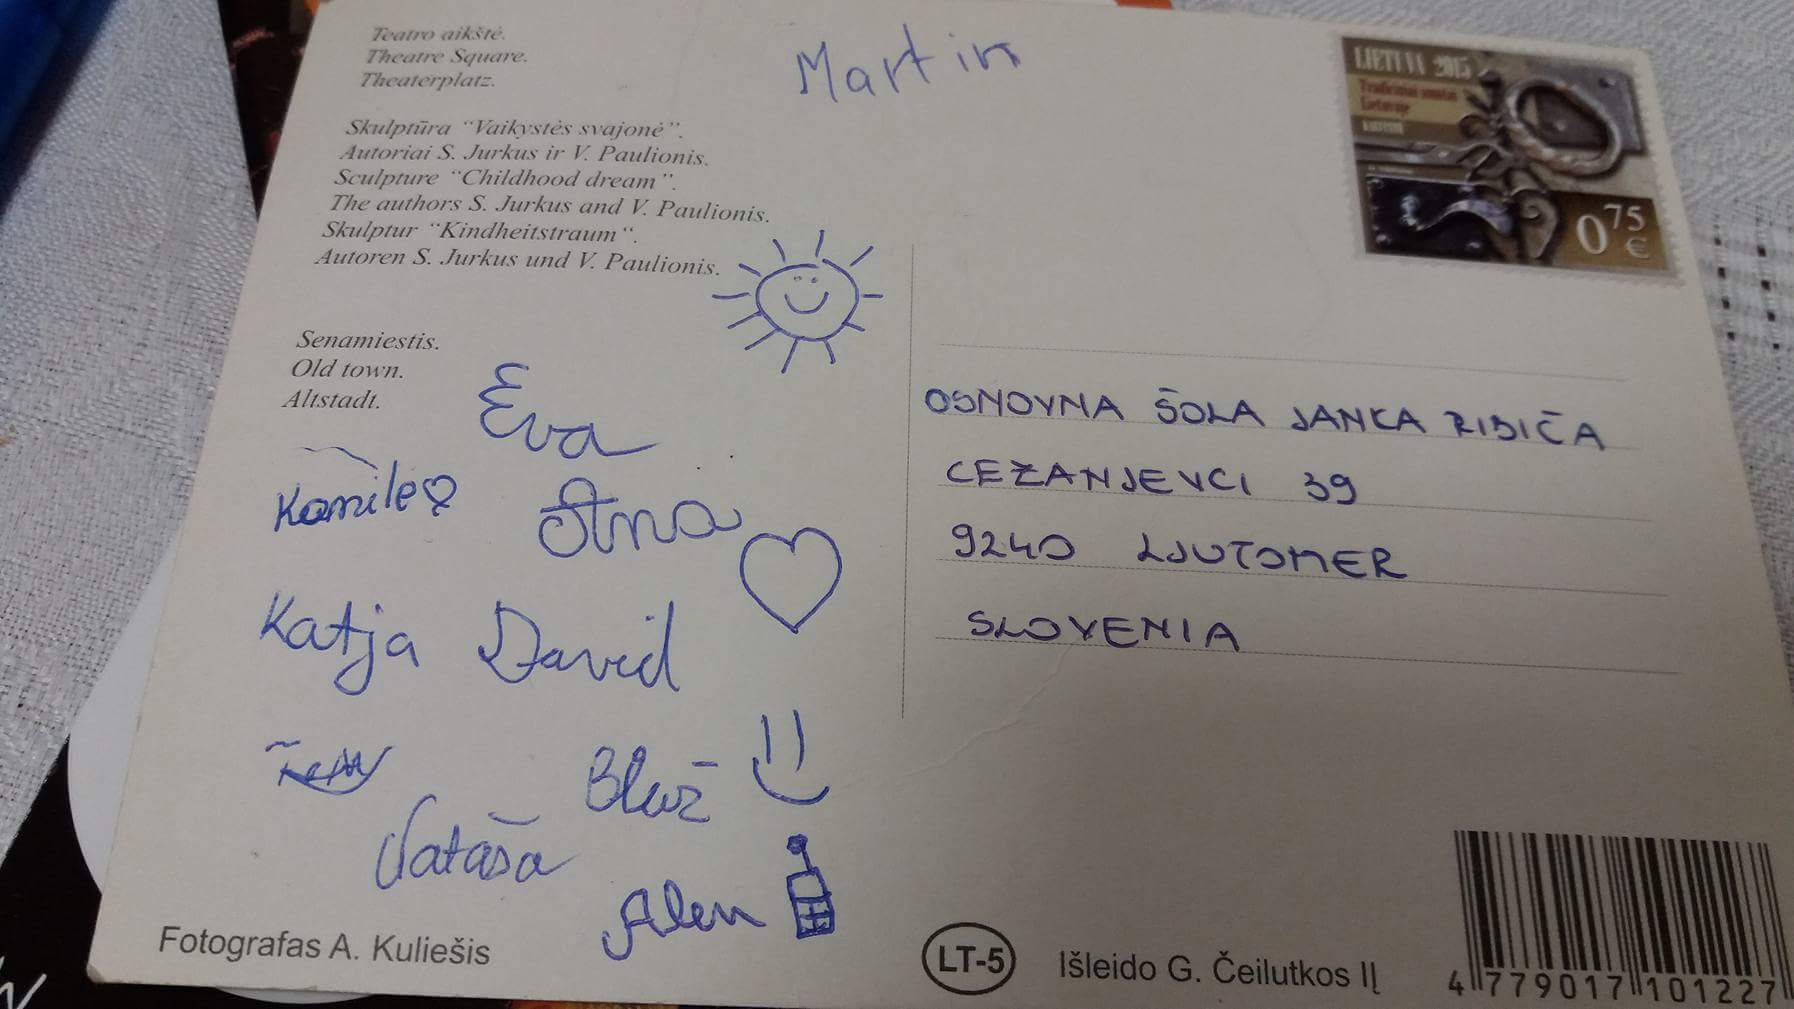 Teatro aikštė.
Theatre Square.
Theaterplatz.
Skulptūra “Vaikystės svajonė”.
Autoriai S. Jurkus ir V. Paulionis.
Sculpture “Childhood dream”.
The authors S. Jurkus and V. Paulionis.
Skulptur “Kindheitstraum“.
Autoren S. Jurkus und V. Paulionis.
Senamiestis.
Old town.
Altstadt.
Martin
Eva
Kamile
Ana
Katja David
Blaž
Nataša
Alen
Fotografas A. Kuliešis
LIETUVA 2015
Tradiciniai amatai
Lietuvoje
0 75
€
OSNOVNA ŠOLA JANKA RIBIČA
CEZANJEVCI 39
9240 LJUTOMER
SLOVENIA
LT-5
Išleido G. Čeilutkos IĮ
4 779017 101227